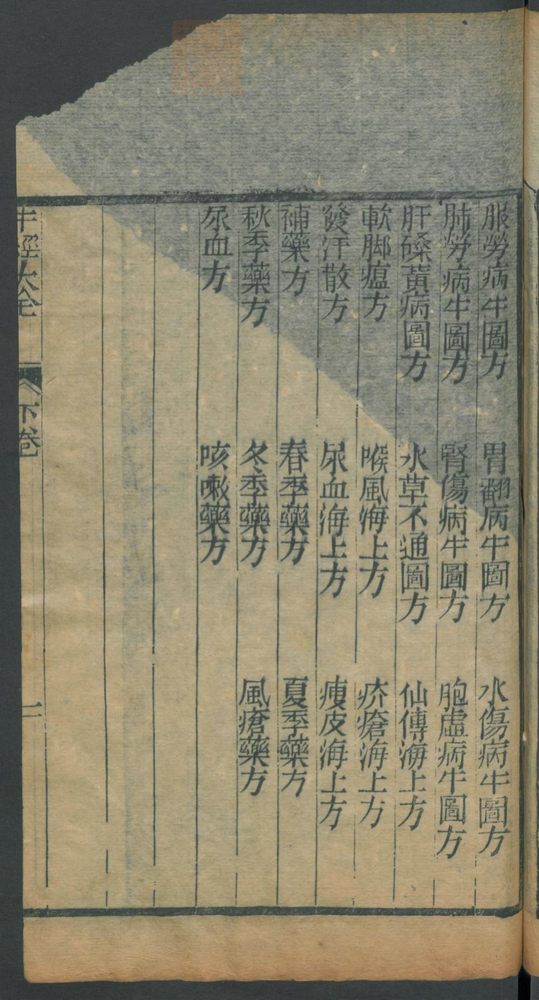 服勞病牛圖方 胃翻病牛圖方 水傷病牛圖方
肺勞病牛圖方 腎傷病牛圖方 胞虛病牛圖方
肝磉黃病圖方 水草不通圖方 仙傳海上方
軟脚瘟方 喉風海上方 疥瘡海上方
發汗散方 尿血海上方 瘦皮海上方
補藥方 春季藥方 夏季藥方
秋季藥方 冬季藥方 風瘡藥方
尿血方 咳嗽藥方
牛經大全 下卷 二